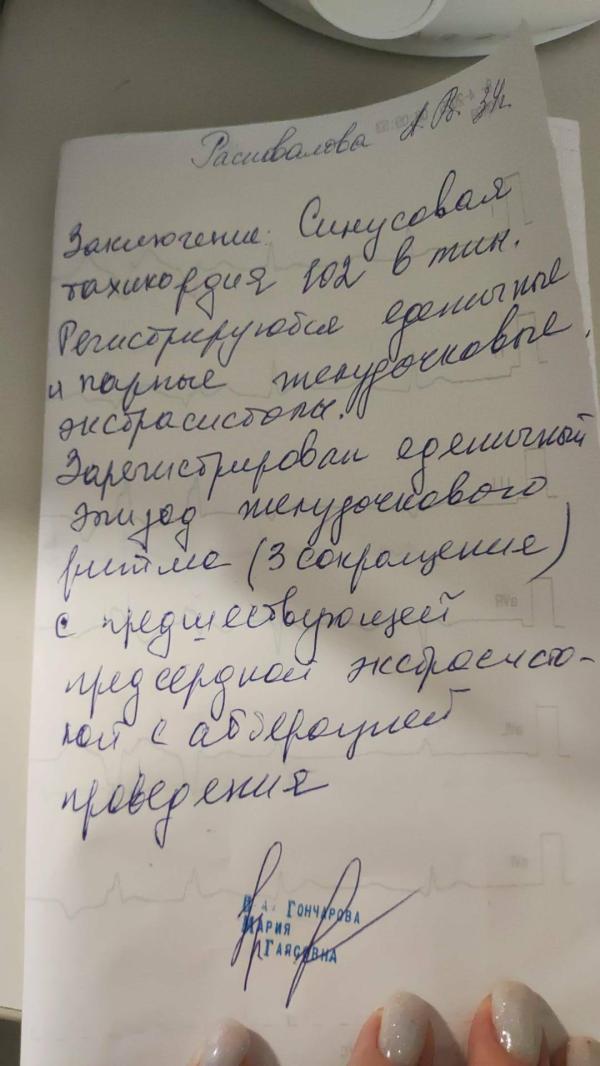 Распвалова А. В. 34г.
Заключение: Синусовая
тахикардия 102 в мин.
Регистрируются еденичные
и парные желудочковые
экстрасистолы.
Зарегистрирован еденичный
эпизод желудочкового
ритма (3 сокращения)
с предшествующей
предсердной экстрасисто-
лой с абберацией
проведения
Гончарова
Мария
Гаясовна